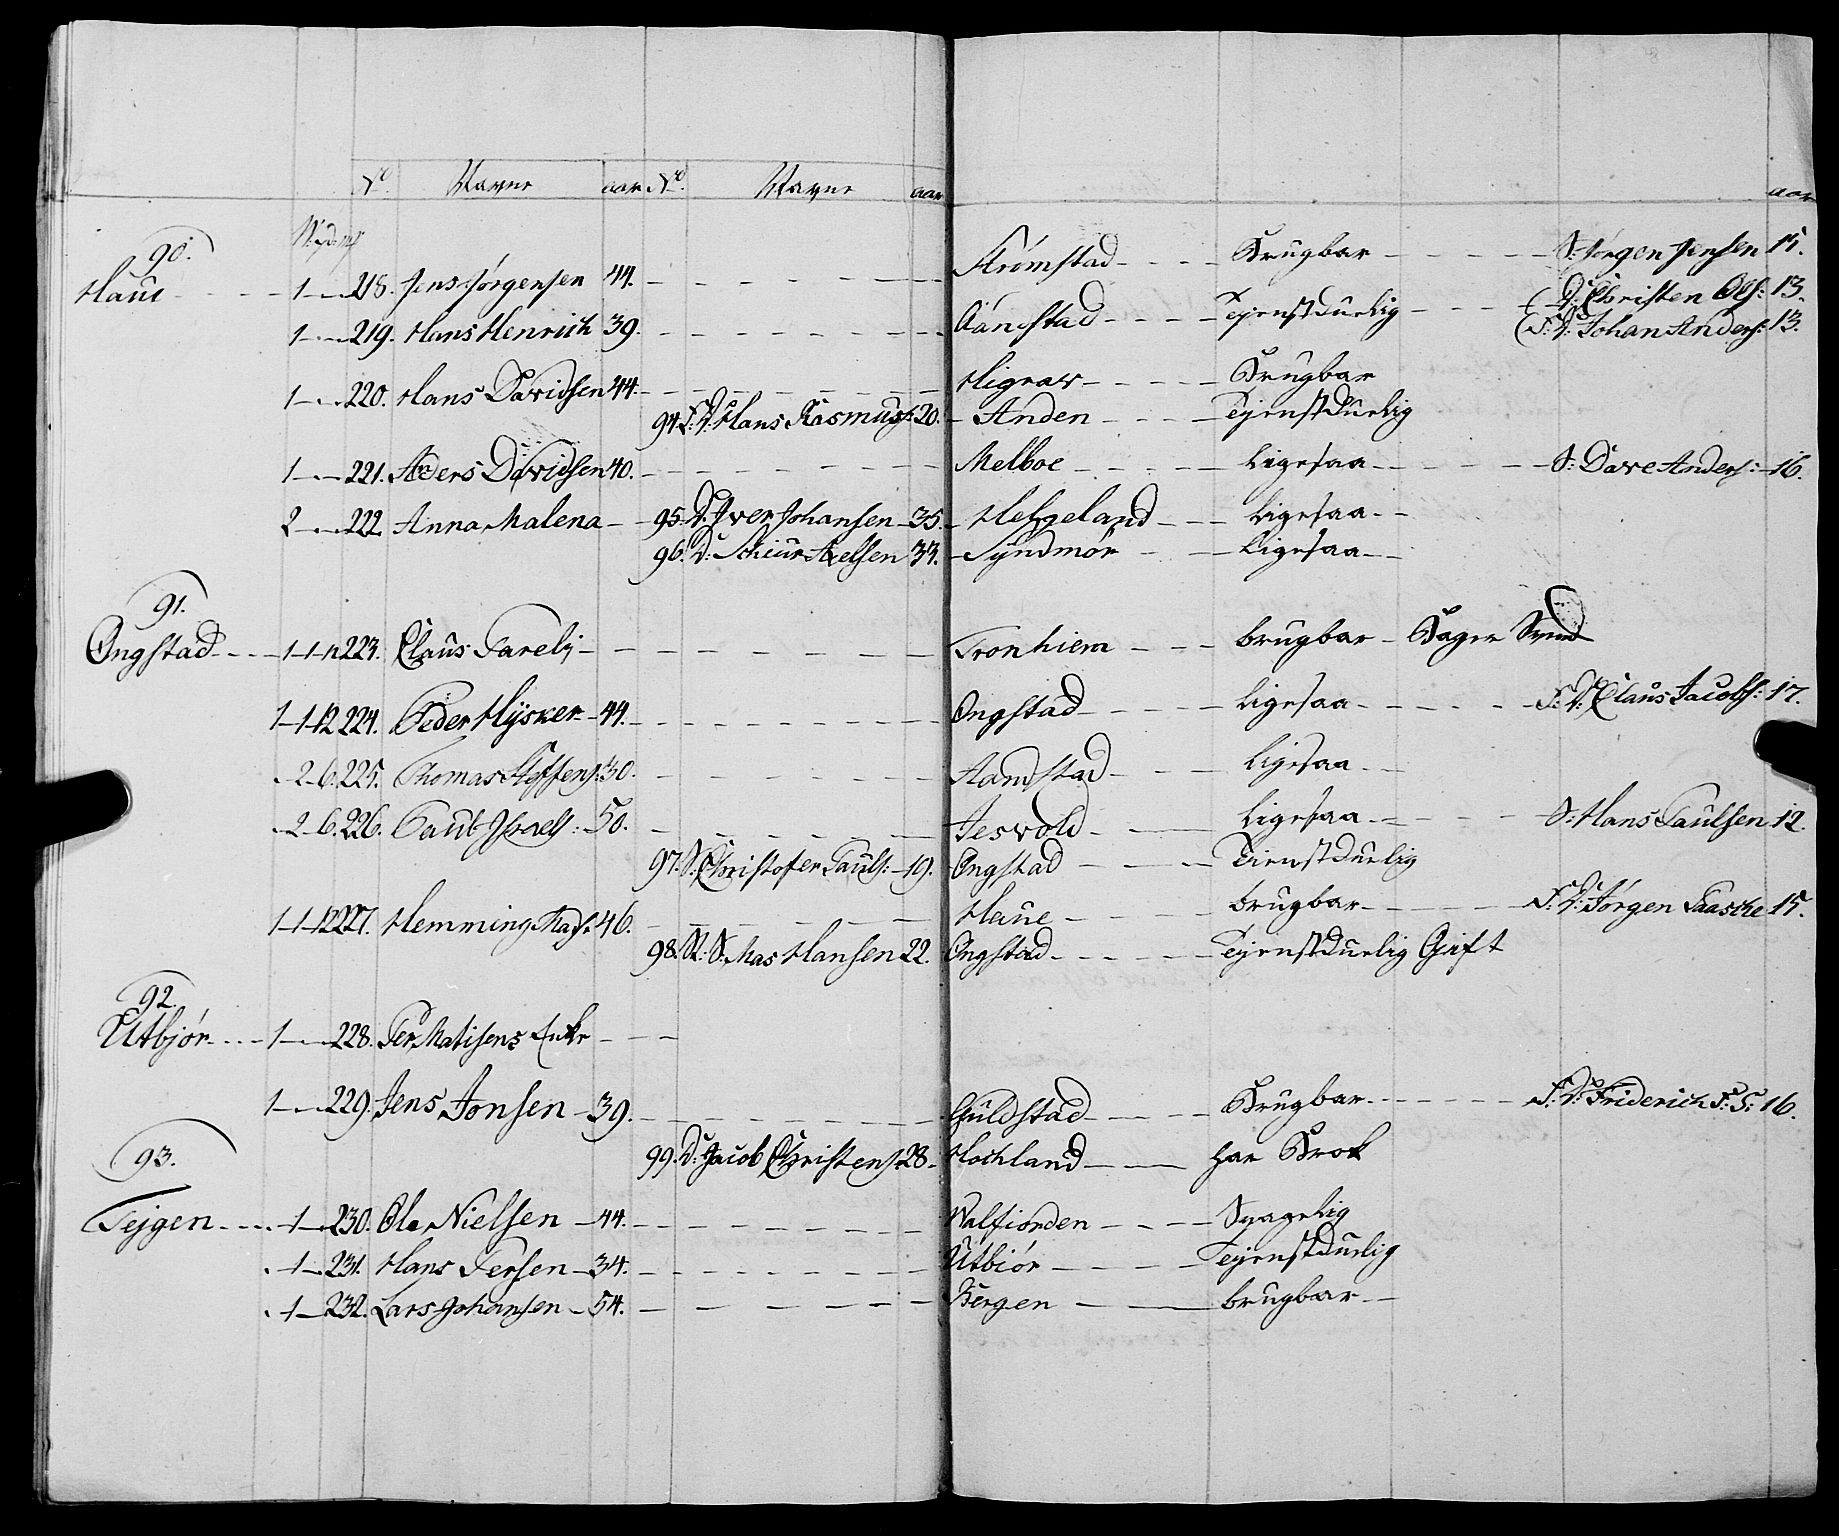 No. Navne aar No. Navne aar aar
90.
Haue - - - 1 - - 218. Jens Jørgensen 44. - - - - Strømstad - - - - Brugbar - - - - - S: Jørgen Jensen 15.
D: Christen Ols: 13.
1 - - 219. Hans Henrich 39. - - - - Aanstad - - - - Tjenstduelig - - - F: D: Johan Anders: 13.
1 - - 220. Hans Davidsen 44. - - - - Higrav - - - - Brugbar
94. F: D: Hans Rasmus: 20. - Anden - - - Tjenstduelig
1 - - 221. Anders Davidsen 40. - - - - Melboe - - - - Ligesaa - - - - - S: Dave Anders: - 16.
2 - - 222. Anna Malena - - 95. D. Iver Johansen - 35. - Helgeland - - - Ligesaa - -
96. D: Axelsen 33. - Syndmør - - Ligesaa - -
91.
Ongstad - - - 1-1-12 223. Claus Parelj - - - - - Tronhiem - - - brugbar -
1-1-12 224. Peder Hysker - 44. - - - - Ongstad - - - - Ligesaa - - - - - F: D: Claus Jacobs: 17.
- 2 - 6. 225. Thomas Steffens: 30. - - - - Aanstad - - - Ligesaa - -
- 2 - 6. 226. Paul Israels: 50. - - - - Jesvold - - - Ligesaa - - - - S: Hans Paulsen 12.
97. S: Christofer Pauls: - 19. - Ongstad - - - Tienstduelig
1-1-12 227. Hemming Mads: 46. - - - - Haue - - - brugbar - - - - F: D: Jørgen Paaske 15.
98. St: S: Mas Hansen 22. Ongstad - - - - - Tjenstduelig Gift
92.
Utbjør - - - 1 - - 228. Per Matisens Enke - - -
1 - - 229. Jens Jonsen - 39. - - - - Guldstad - - - Brugbar - - - - - F: D: Friderich F: S: 16.
93. 99. D: Jacob Christens: 28 - Hochland - - har Brok
Tejgen - - - - 1 - 230. Ole Nielsen - 44. - - - - Valfiorden - - - - Svagelig
- 1 - 231. Hans Persen - 34. - - - - Utbiør - - - - - Tejenstduelig
- 1 - 232. Lars Johansen - 54. - - - - Bergen - - - brugbar - -